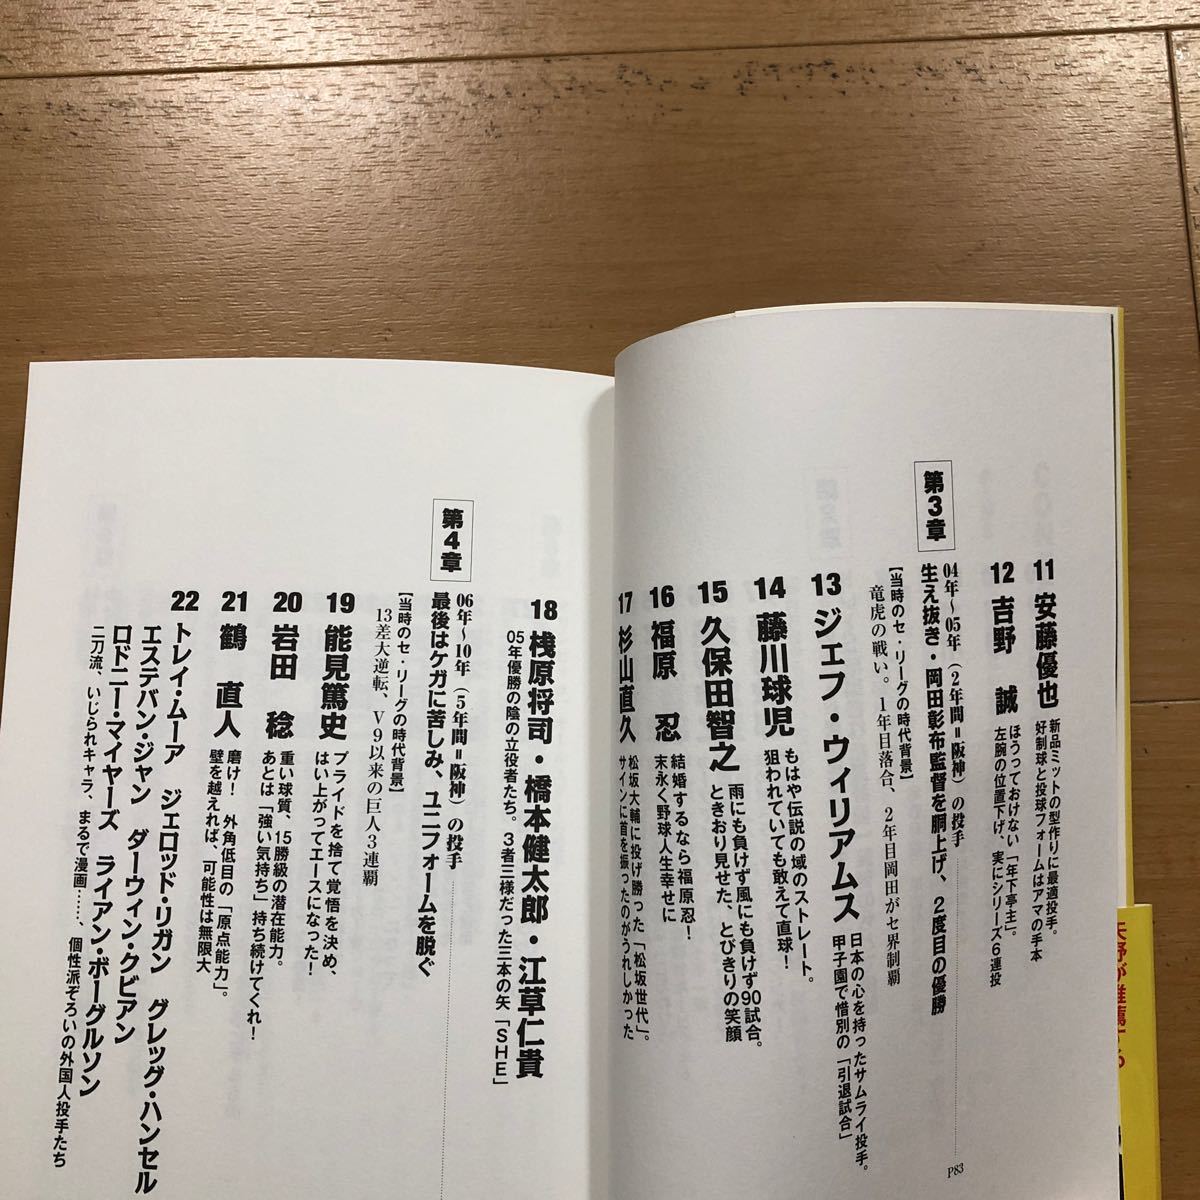 11 安藤優也
新品ミットの型作りに最適投手。
好制球と投球フォームはアマの手本
12 吉野 誠
ほうっておけない「年下亭主」。
左腕の位置下げ、実にシリーズ6連投
第3章
04年〜05年（2年間＝阪神）の投手
生え抜き・岡田彰布監督を胴上げ、2度目の優勝
P83
【当時のセ・リーグの時代背景】
竜虎の戦い。1年目落合、2年目岡田がセ界制覇
13 ジェフ・ウィリアムス
日本の心を持ったサムライ投手。
甲子園で惜別の「引退試合」
14 藤川球児
もはや伝説の域のストレート。
狙われていても敢えて直球！
15 久保田智之
雨にも負けず風にも負けず90試合。
ときおり見せた、とびきりの笑顔
16 福原 忍
結婚するなら福原忍！
末永く野球人生幸せに
17 杉山直久
松坂大輔に投げ勝った「松坂世代」。
サインに首を振ったのがうれしかった
18 桟原将司・橋本健太郎・江草仁貴
05年優勝の陰の立役者たち。3者三様だった三本の矢「SHE」
第4章
06年〜10年（5年間＝阪神）の投手
最後はケガに苦しみ、ユニフォームを脱ぐ
【当時のセ・リーグの時代背景】
13差大逆転、V9以来の巨人3連覇
19 能見篤史
プライドを捨て覚悟を決め、
はい上がってエースになった！
20 岩田 稔
重い球質、15勝級の潜在能力。
あとは「強い気持ち」持ち続けてくれ！
21 鶴 直人
磨け！ 外角低目の「原点能力」。
壁を越えれば、可能性は無限大
22 トレイ・ムーア ジェロッド・リガン グレッグ・ハンセル
エステバン・ジャン ダーウィン・クビアン
ロドニー・マイヤーズ ライアン・ボーグルソン
二刀流、いじられキャラ、まるで漫画……、個性派ぞろいの外国人投手たち